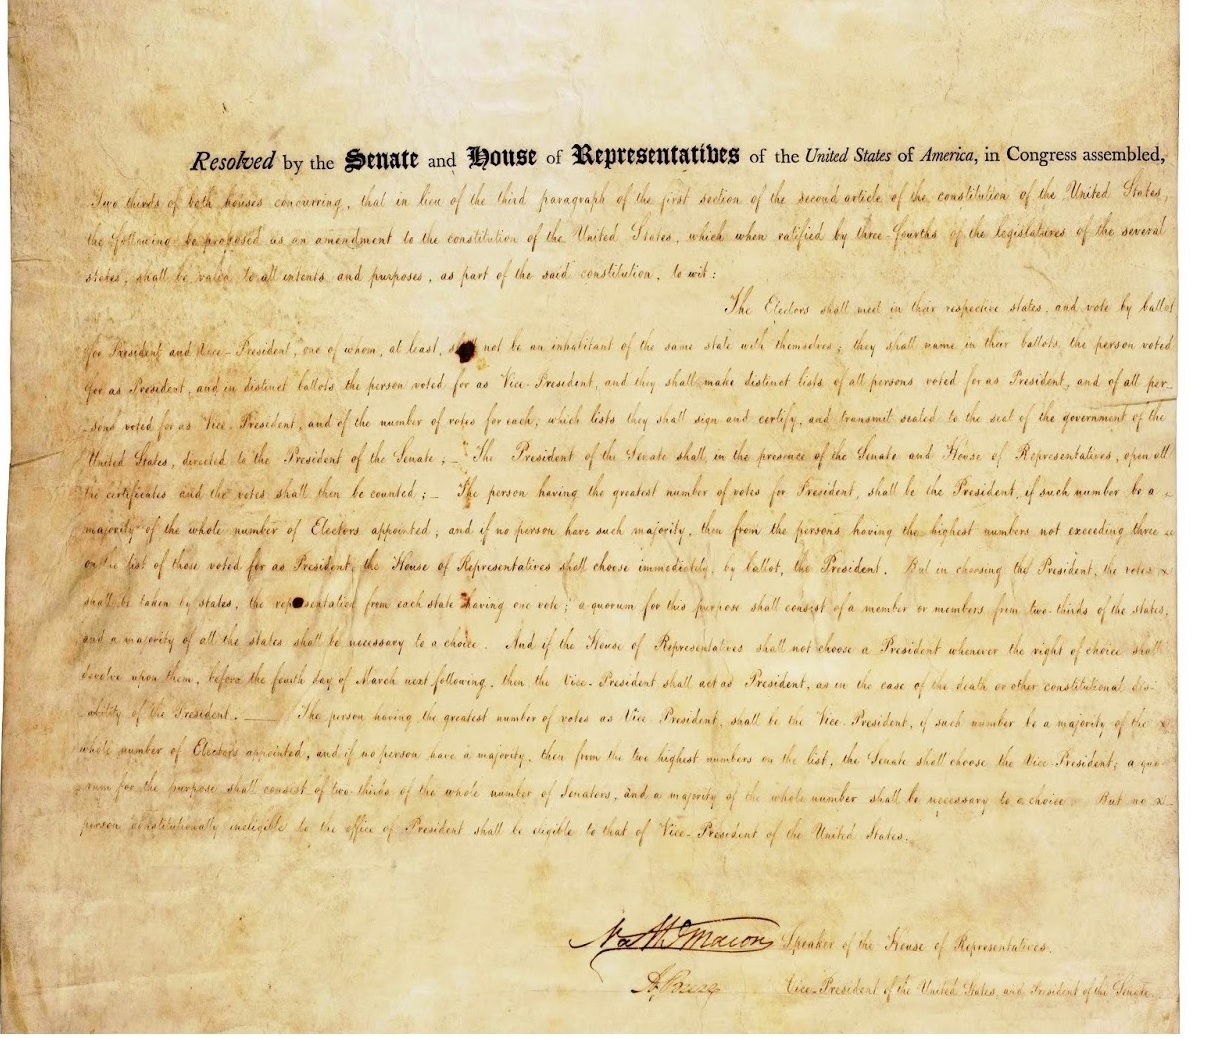 Resolved by the Senate and House of Representatives of the United States of America, in Congress assembled,
Two thirds of both houses concurring, that in lieu of the third paragraph of the first section of the second article of the constitution of the United States,
the following be proposed as an amendment to the constitution of the United States, which when ratified by three-fourths of the legislatures of the several
states, shall be valid to all intents and purposes, as part of the said constitution, to wit:
The Electors shall meet in their respective states, and vote by ballot
for President and Vice-President, one of whom, at least, shall not be an inhabitant of the same state with themselves; they shall name in their ballots the person voted
for as President, and in distinct ballots the person voted for as Vice-President, and they shall make distinct lists of all persons voted for as President, and of all per-
-sons voted for as Vice-President, and of the number of votes for each, which lists they shall sign and certify, and transmit sealed to the seat of the government of the
United States, directed to the President of the Senate;_ The President of the Senate shall, in the presence of the Senate and House of Representatives, open all
the certificates and the votes shall then be counted;_ The person having the greatest number of votes for President, shall be the President, if such number be a
majority of the whole number of Electors appointed; and if no person have such majority, then from the persons having the highest numbers not exceeding three
on the list of those voted for as President, the House of Representatives shall choose immediately, by ballot, the President. But in choosing the President, the votes
shall be taken by states, the representation from each state having one vote; a quorum for this purpose shall consist of a member or members from two-thirds of the states,
and a majority of all the states shall be necessary to a choice. And if the House of Representatives shall not choose a President whenever the right of choice shall
devolve upon them, before the fourth day of March next following, then the Vice-President shall act as President, as in the case of the death or other constitutional dis-
-ability of the President. ___ The person having the greatest number of votes as Vice-President, shall be the Vice-President, if such number be a majority of the
whole number of Electors appointed, and if no person have a majority, then from the two highest numbers on the list, the Senate shall choose the Vice-President; a quo-
-rum for the purpose shall consist of two-thirds of the whole number of Senators, and a majority of the whole number shall be necessary to a choice. But no
person constitutionally ineligible to the office of President shall be eligible to that of Vice-President of the United States.
Nath Macon Speaker of the House of Representatives.
A. Burr Vice-President of the United States, and President of the Senate.